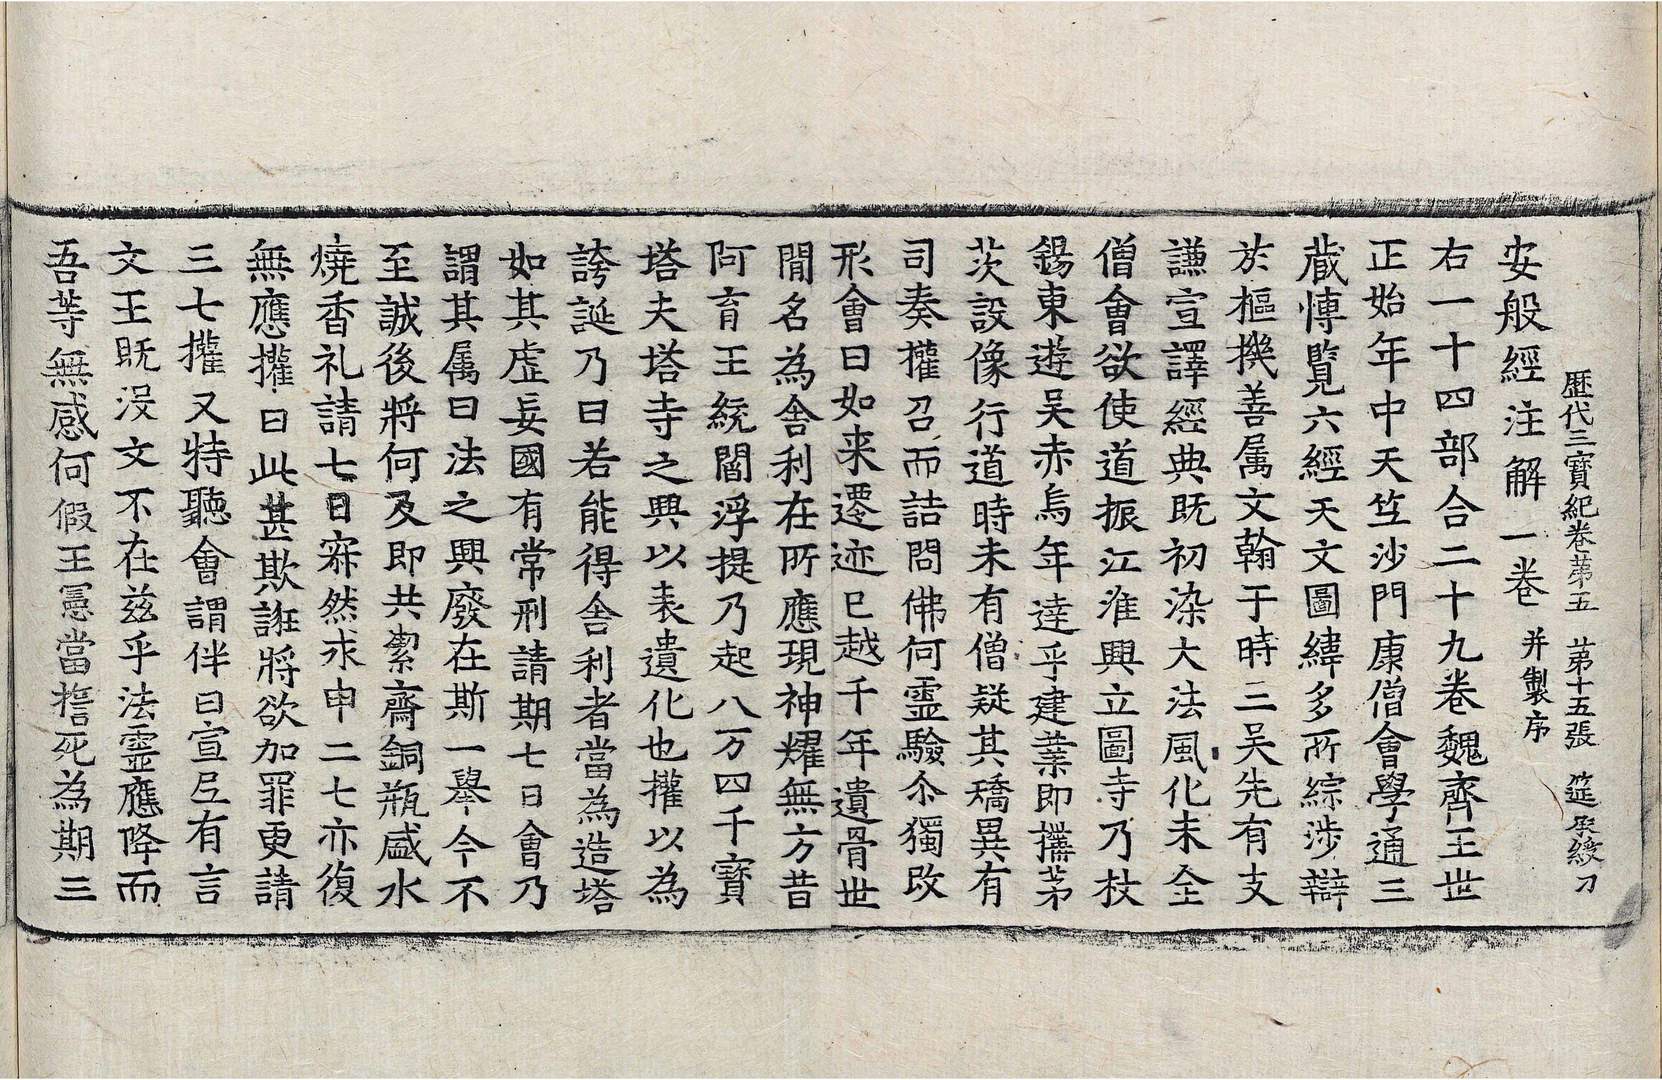 歷代三寶紀卷第五 第十五張 筵 承綬刀
安般經注解一卷 并製序
右一十四部合二十九卷魏齊王世
正始年中天竺沙門康僧會學通三
藏愽覧六經天文圖緯多所綜涉辯
於樞機善属文翰于時三吴先有支
謙宣譯經典既初染大法風化未全
僧會欲使道振江淮興立圖寺乃杖
錫東遊吴赤烏年達乎建業即攝茅
茨設像行道時未有僧疑其矯異有
司奏權召而詰問佛何靈驗尒獨改
形會曰如来遷迹已越千年遺骨世
閒名為舍利在所應現神耀無方昔
阿育王統閻浮提乃起八万四千寶
塔夫塔寺之興以表遺化也權以為
誇誕乃曰若能得舍利者當為造塔
如其虚妄國有常刑請期七日會乃
謂其属曰法之興廢在斯一舉今不
至誠後將何及即共潔齋銅瓶盛水
燒香礼請七日寂然求申二七亦復
無應權曰此甚欺誑將欲加罪更請
三七權又特聽會謂伴曰宣尼有言
文王既没文不在兹乎法靈應降而
吾等無感何假王憲當誓死為期三